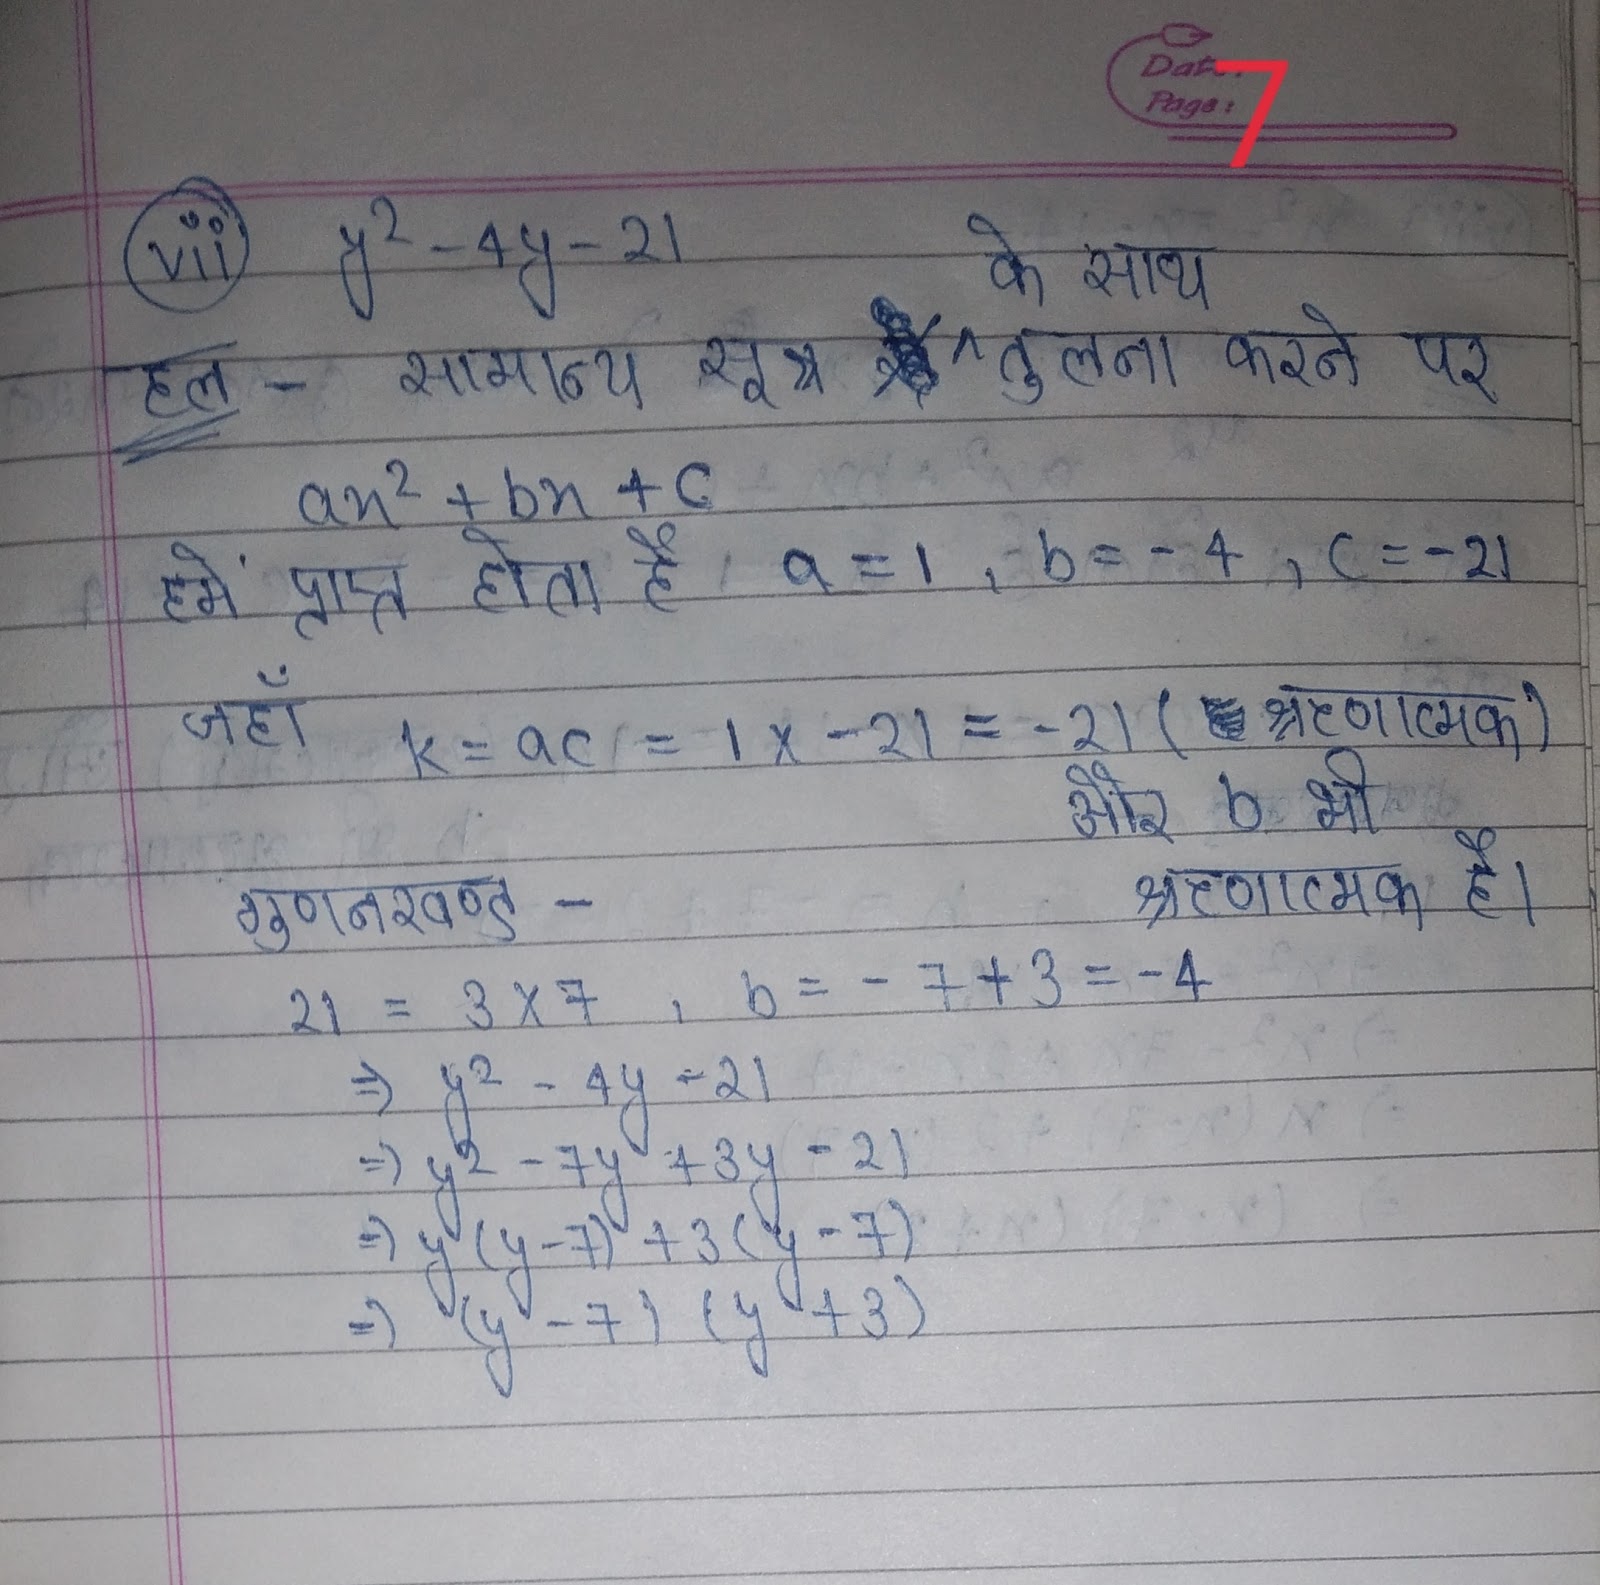 Date:
Page:
7
vii y² - 4y - 21
के साथ
हल - सामान्य सूत्र ^ तुलना करने पर
ax² + bx + c
हमें प्राप्त होता है, a = 1, b = -4, c = -21
जहाँ k = ac = 1 x -21 = -21 (श्रृणात्मक)
और b भी
गुणनखण्ड - श्रृणात्मक है।
21 = 3 x 7, b = -7 + 3 = -4
⇒ y² - 4y - 21
⇒ y² - 7y + 3y - 21
⇒ y (y - 7) + 3 (y - 7)
⇒ (y - 7) (y + 3)